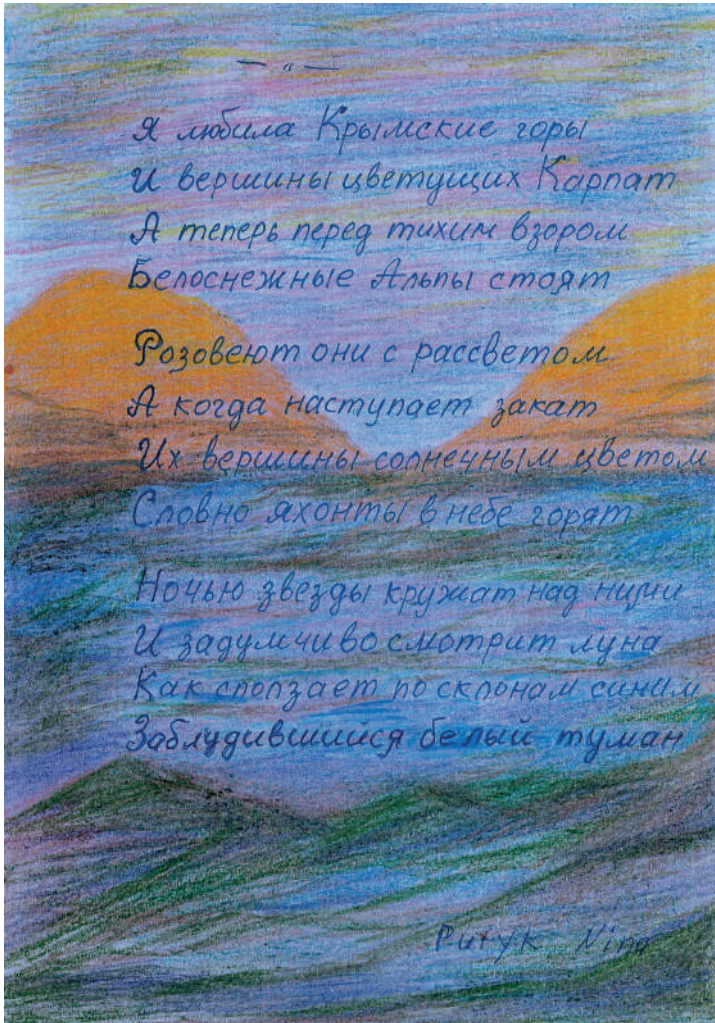 — " —
Я любила Крымские горы
И вершины цветущих Карпат
А теперь перед тихим взором
Белоснежные Альпы стоят
Розовеют они с рассветом.
А когда наступает закат
Их вершины солнечным цветом
Словно яхонты в небе горят
Ночью звезды кружат над ними
И задумчиво смотрит луна
Как сползает по склонам синим
Заблудившийся белый туман
Nina